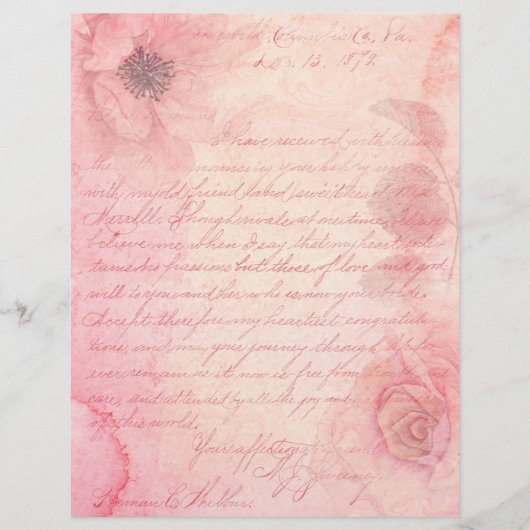 Columbia Co. Pa.
Dec. 13. 1878.
I have received with pleasure
the announcing your happy union
with my old friend (and sweetheart) Miss
Merrill. Though rivals at one time, believe
believe me when I say that my heart enter-
tains no passions but those of love and good
will to you and her who is now your bride.
Accept therefore my heartiest congratula-
tions, and may your journey through life for-
ever remain as it now is free from trouble and
care, and attended by all the joy and
of this world.
Your affectionate friend
M. J. Sweeney.
C. Wilbur.